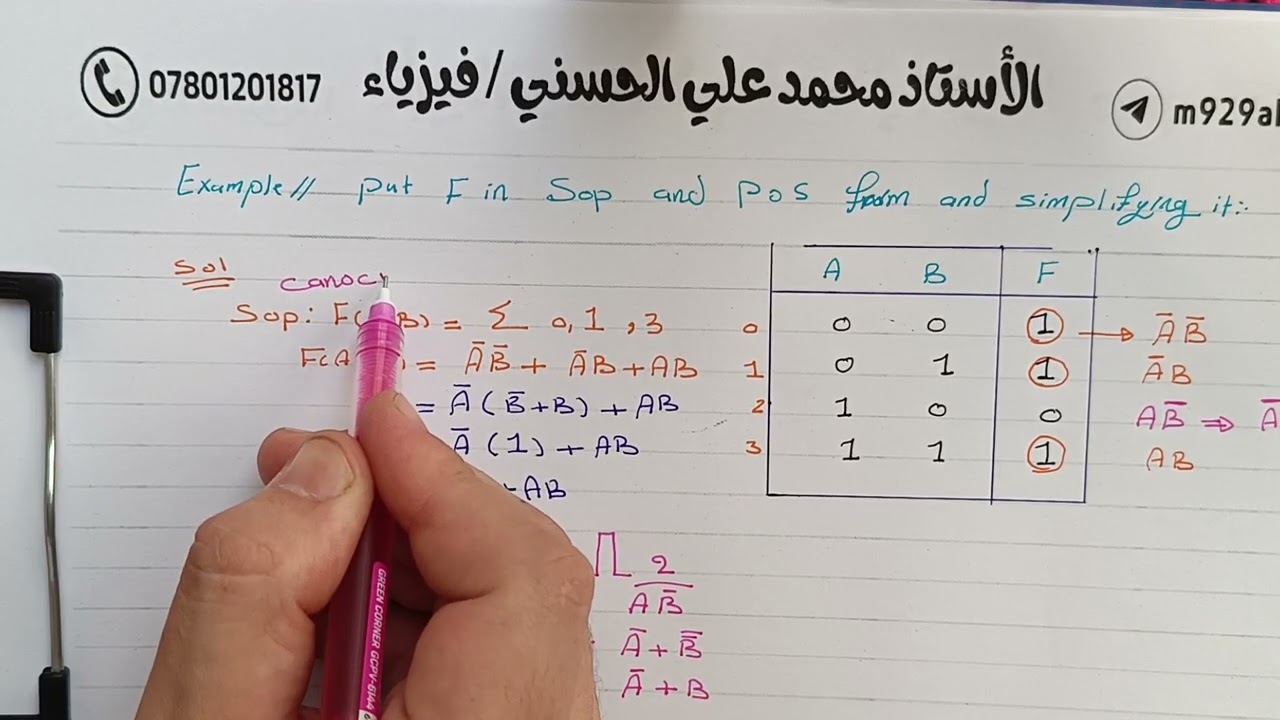 07801201817 الأستاذ محمد علي الحسني / فيزياء m929al
Example// put F in Sop and pos from and simplifying it:-
Sol canoc
A B F
Sop: F( B) = Σ 0,1,3
0 0 0 1 → A̅ B̅
F(A ) = A̅B̅ + A̅B + AB
1 0 1 1 A̅ B
= A̅ (B̅+B) + AB
2 1 0 0 AB̅ ⇒ A̅
A̅ (1) + AB
3 1 1 1 AB
+AB
∏ 2
A̅B̿
A̅ + B̿
A̅ + B
GREEN CORNER GCPV-6144